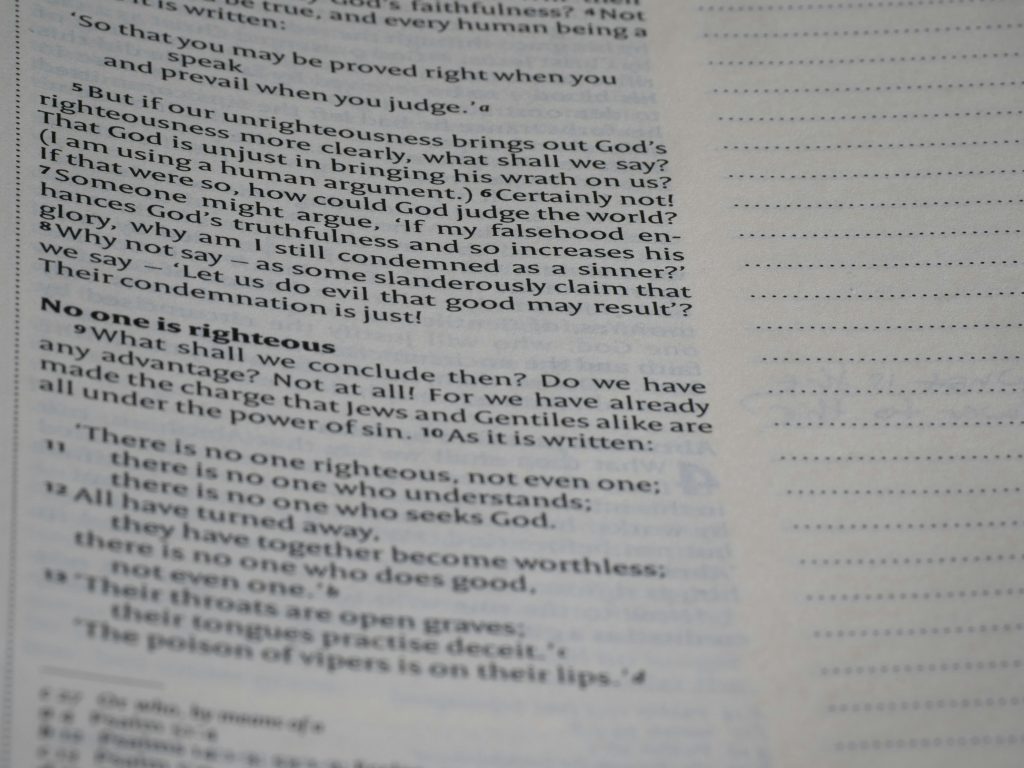 God's faithfulness? 4 Not
be true, and every human being a
it is written:
'So that you may be proved right when you
speak
and prevail when you judge.' a
5 But if our unrighteousness brings out God's
righteousness more clearly, what shall we say?
That God is unjust in bringing his wrath on us?
(I am using a human argument.) 6 Certainly not!
If that were so, how could God judge the world?
7 Someone might argue, 'If my falsehood en-
hances God's truthfulness and so increases his
glory, why am I still condemned as a sinner?'
8 Why not say – as some slanderously claim that
we say – 'Let us do evil that good may result'?
Their condemnation is just!
No one is righteous
9 What shall we conclude then? Do we have
any advantage? Not at all! For we have already
made the charge that Jews and Gentiles alike are
all under the power of sin. 10 As it is written:
'There is no one righteous, not even one;
11 there is no one who understands;
there is no one who seeks God.
12 All have turned away,
they have together become worthless;
there is no one who does good,
not even one.' b
13 'Their throats are open graves;
their tongues practise deceit.' c
'The poison of vipers is on their lips.' d
Or who, by means of a
Psalm
Psalms
Psalm